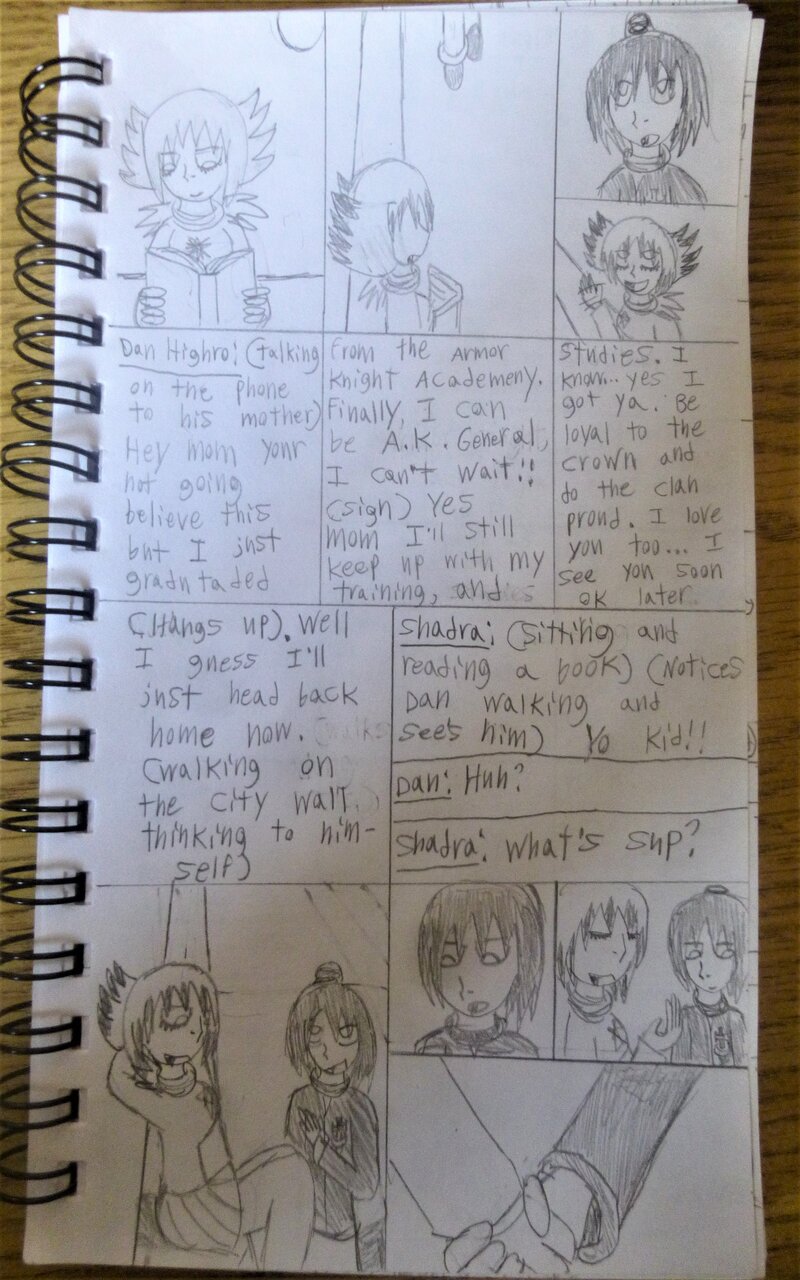 Dan Highro: (talking
on the phone
to his mother)
Hey mom your
not going
believe this
but I just
gradutaded
from the Armor
Knight Academeny.
Finally, I can
be A.K. General,
I can't wait!!
(sign) Yes
mom I'll still
keep up with my
training, and
studies. I
know... yes I
got ya. Be
loyal to the
crown and
do the clan
proud. I love
you too... I
see you soon
ok later.
(Hangs up). Well
I guess I'll
just head back
home now.
(walking on
the city wall
thinking to him-
self)
Shadra: (sitting and
reading a book) (Notices
Dan walking and
sees him) Yo kid!!
Dan: Huh?
Shadra: What's sup?